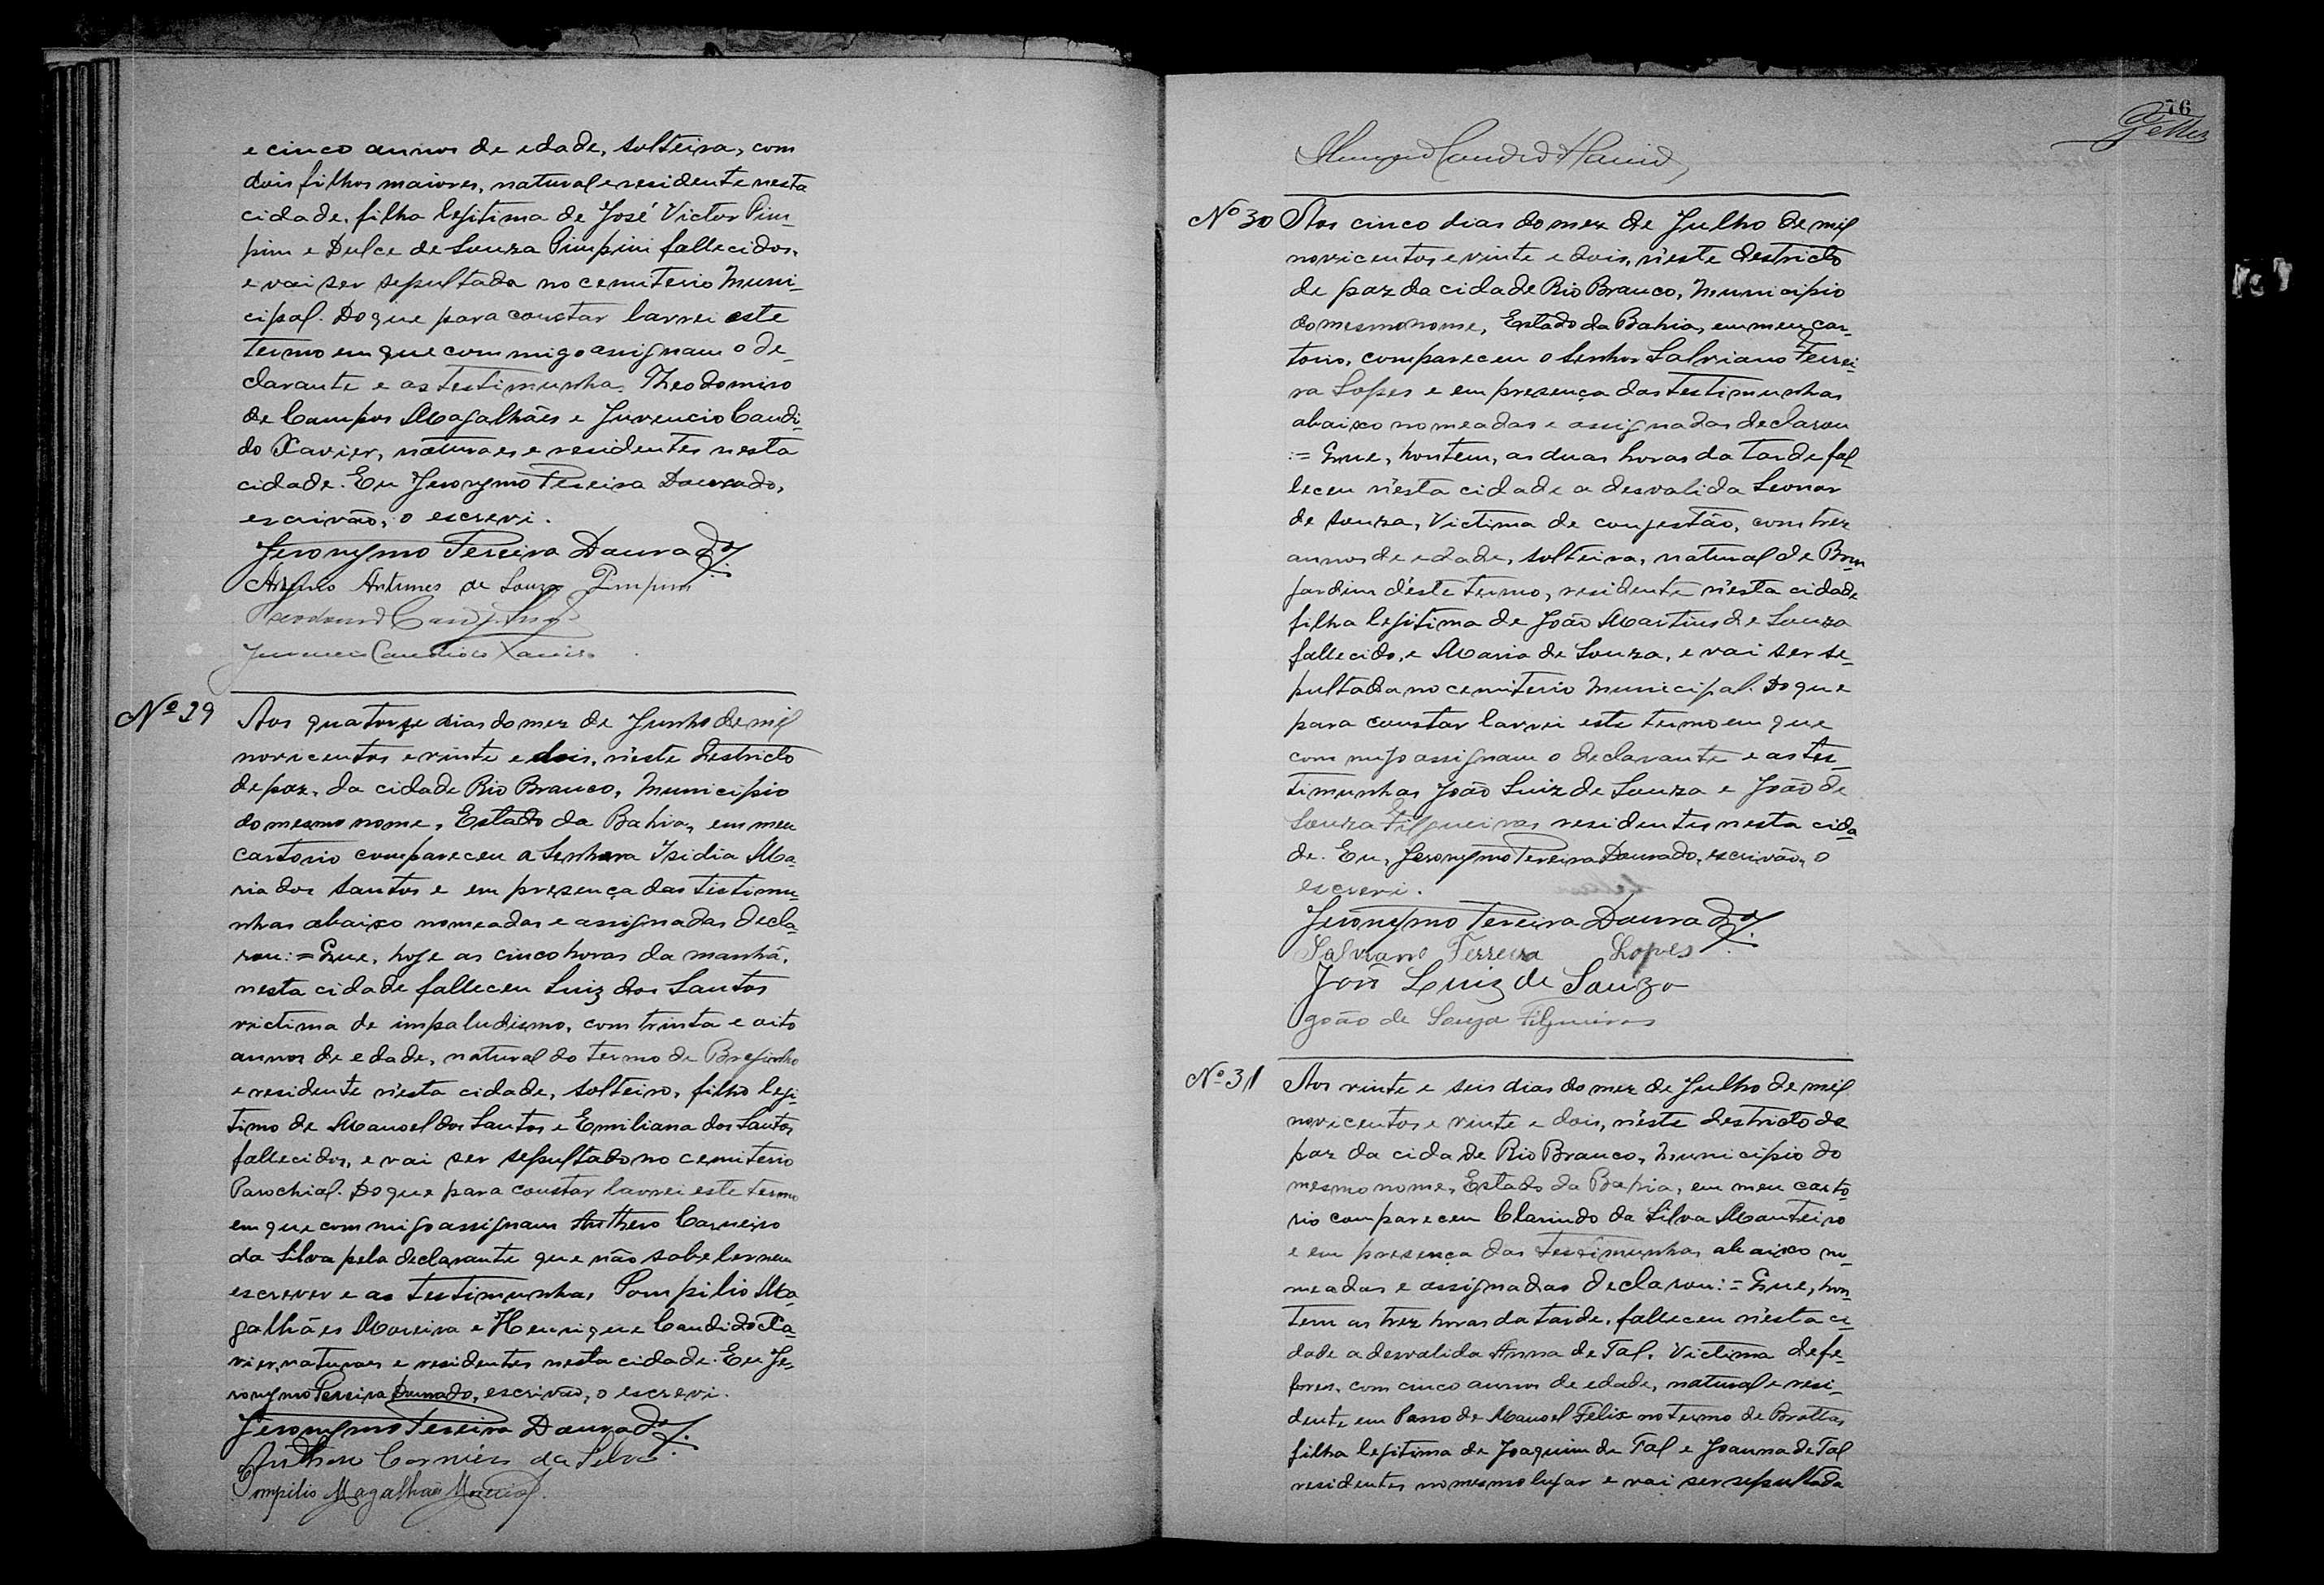 e cinco annos de edade, solteira, com
dois filhos maiores, natural e residente nesta
cidade, filha legitima de José Victor Pim-
pim e Dulce de Souza Pimpim fallecidos,
e vai ser sepultada no cemiterio Muni-
cipal. Do que para constar lavrei este
termo em que commigo assignam o de-
clarante e as testimunhas Theodomiro
de Campos Magalhães e Juvencio Candi-
do Xavier, naturaes e residentes nesta
cidade. Eu Jeronymo Pereira Dourado,
escrivão, o escrevi.
Jeronymo Pereira Dourado
Antunes de Souza Pimpim
Candido Xavier
Nº 29
Aos quatorze dias do mez de Junho de mil
novicentos e vinte e dois, n'este destricto
de paz, da cidade Rio Branco, Municipio
do mesmo nome, Estado da Bahia, em meu
cartorio compareceu a Senhora Isidia Ma-
ria dos Santos e em presença das testimu-
nhas abaixo nomeadas e assignadas decla-
rou:= Que, hoje as cinco horas da manhã,
nesta cidade falleceu Luiz dos Santos
victima de impaludismo, com trinta e oito
annos de edade, natural do termo de Brejinho
e residente n'esta cidade, solteiro, filho legi-
timo de Manoel dos Santos e Emiliana dos Santos
fallecidos, e vai ser sepultado no cemiterio
Parochial. Do que para constar lavrei este termo
em que commigo assignam Anthero Carneiro
da Silva pela declarante que não sabe ler nem
escrever e as testimunhas Pompilio Ma-
galhães Moreira e Henrique Candido Xa-
vier, naturaes e residentes nesta cidade. Eu Je-
ronymo Pereira Dourado, escrivão, o escrevi.
Jeronymo Pereira Dourado
Anthero Carneiro da Silva
Pompilio Magalhães Moreira
76
Nº 30 Aos cinco dias do mez de Julho de mil
novicentos e vinte e dois, n'este destricto
de paz da cidade Rio Branco, Municipio
do mesmo nome, Estado da Bahia, em meu car-
torio, compareceu o Senhor Salviano Ferrei-
ra Lopes e em presença das testimunhas
abaixo nomeadas e assignadas declarou
:= Que, hontem, as duas horas da tarde fal
leceu n'esta cidade a desvalida Leonor
de Souza, Victima de congestão, com trez
annos de edade, solteira, natural de Bom
Jardim d'este termo, residente n'esta cidade
filha legitima de João Martins de Souza
fallecido, e Maria de Souza, e vai ser se-
pultada no cemiterio Municipal. Do que
para constar lavrei este termo em que
commigo assignam o declarante e as tes-
timunhas João Luiz de Souza e João de
Souza Filgueiras residentes nesta cida
de. Eu, Jeronymo Pereira Dourado, escrivão, o
escrevi.
Jeronymo Pereira Dourado
Salviano Ferreira Lopes
João Luiz de Souza
João de Souza Filgueiras
Nº 31 Aos vinte e seis dias do mez de Julho de mil
novicentos e vinte e dois, n'este destricto de
paz da cidade Rio Branco, Municipio do
mesmo nome, Estado da Bahia, em meu carto
rio compareceu Clarindo da Silva Monteiro
e em presença das testimunhas abaixo no-
meadas e assignadas declarou:= Que, hon
tem as trez horas da tarde, falleceu n'esta ci
dade a desvalida Anna de Tal, Victima de fe-
bres, com cinco annos de edade, natural e resi-
dente em Passo de Manoel Felix no termo de Brottas
filha legitima de Joaquim de Tal e Joanna de Tal
residentes no mesmo lugar e vai ser sepultada